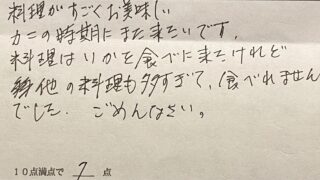 料理がすごくお美味しい
カニの時期にまた来たいです.
料理はいかを食べに来たけれど
他の料理も多すぎて、食べれません
でした. ごめんなさい。
10点満点で 7 点